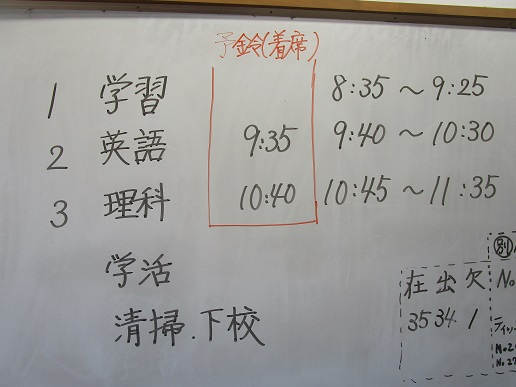 予鈴(着席)
1 学習 8:35 ～ 9:25
2 英語 9:35 9:40 ～ 10:30
3 理科 10:40 10:45 ～ 11:35
学活
清掃.下校
在 出 欠
35 34. 1
別
No
No.2
No.27